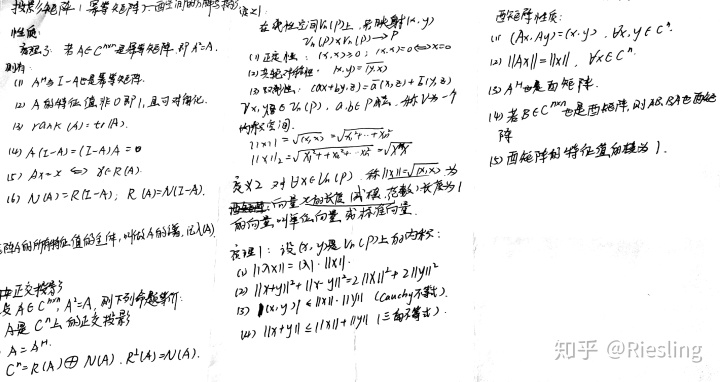 投影矩阵(幂等矩阵)
性质:
定理3: 若A∈Cⁿˣⁿ是幂等矩阵,即A²=A.
则有:
(1) Aᴴ与I-A也是幂等矩阵.
(2) A的特征值非0即1,且可对角化.
(3) rank(A)=tr(A).
(4) A(I-A)=(I-A)A=0
(5) Ax=x ⇔ x∈R(A).
(6) N(A)=R(I-A), R(A)=N(I-A).
阵A的所有特征值的全体,叫做A的谱,记λ(A)
正交投影
A∈Cⁿˣⁿ, A²=A, 则下列命题等价:
A是Cⁿ上的正交投影
A=Aᴴ.
Cⁿ=R(A)⊕N(A). R^⊥(A)=N(A).
义1:
在线性空间Vn(P)上,若映射(x,y)
Vn(P)×Vn(P)→P
(1) 正定性: (x,x)≥0; (x,x)=0⇔x=0
(2) 共轭对称性: (x,y)=(y,x)
(3) 双线性: (ax+by,z)=a(x,z)+b(y,z)
∀x,y,z∈Vn(P), a,b∈P 称V为一个
内积空间.
||x||=√(x,x)=
||x||₂=√x₁²+x₂²+…xn²
定义2 对∀x∈Vn(P), 称||x||=√(x,x)为
向量x的长度(或模,范数)长度为1
的向量叫单位向量或标准向量.
定理1: 设(x,y)是Vn(P)上的内积:
(1) ||λx||=|λ|·||x||.
(2) ||x+y||²+||x-y||²=2||x||²+2||y||²
(3) |(x,y)|≤||x||·||y|| (Cauchy不等式).
(4) ||x+y||≤||x||+||y|| (三角不等式).
酉矩阵性质:
(1) (Ax,Ay)=(x,y), ∀x,y∈Cⁿ.
(2) ||Ax||=||x||, ∀x∈Cⁿ.
(3) Aᴴ也是酉矩阵.
(4) 若B∈Cⁿˣⁿ也是酉矩阵,则AB,BA也酉矩
阵
(5) 酉矩阵的特征值的模为1.
知乎 @Riesling